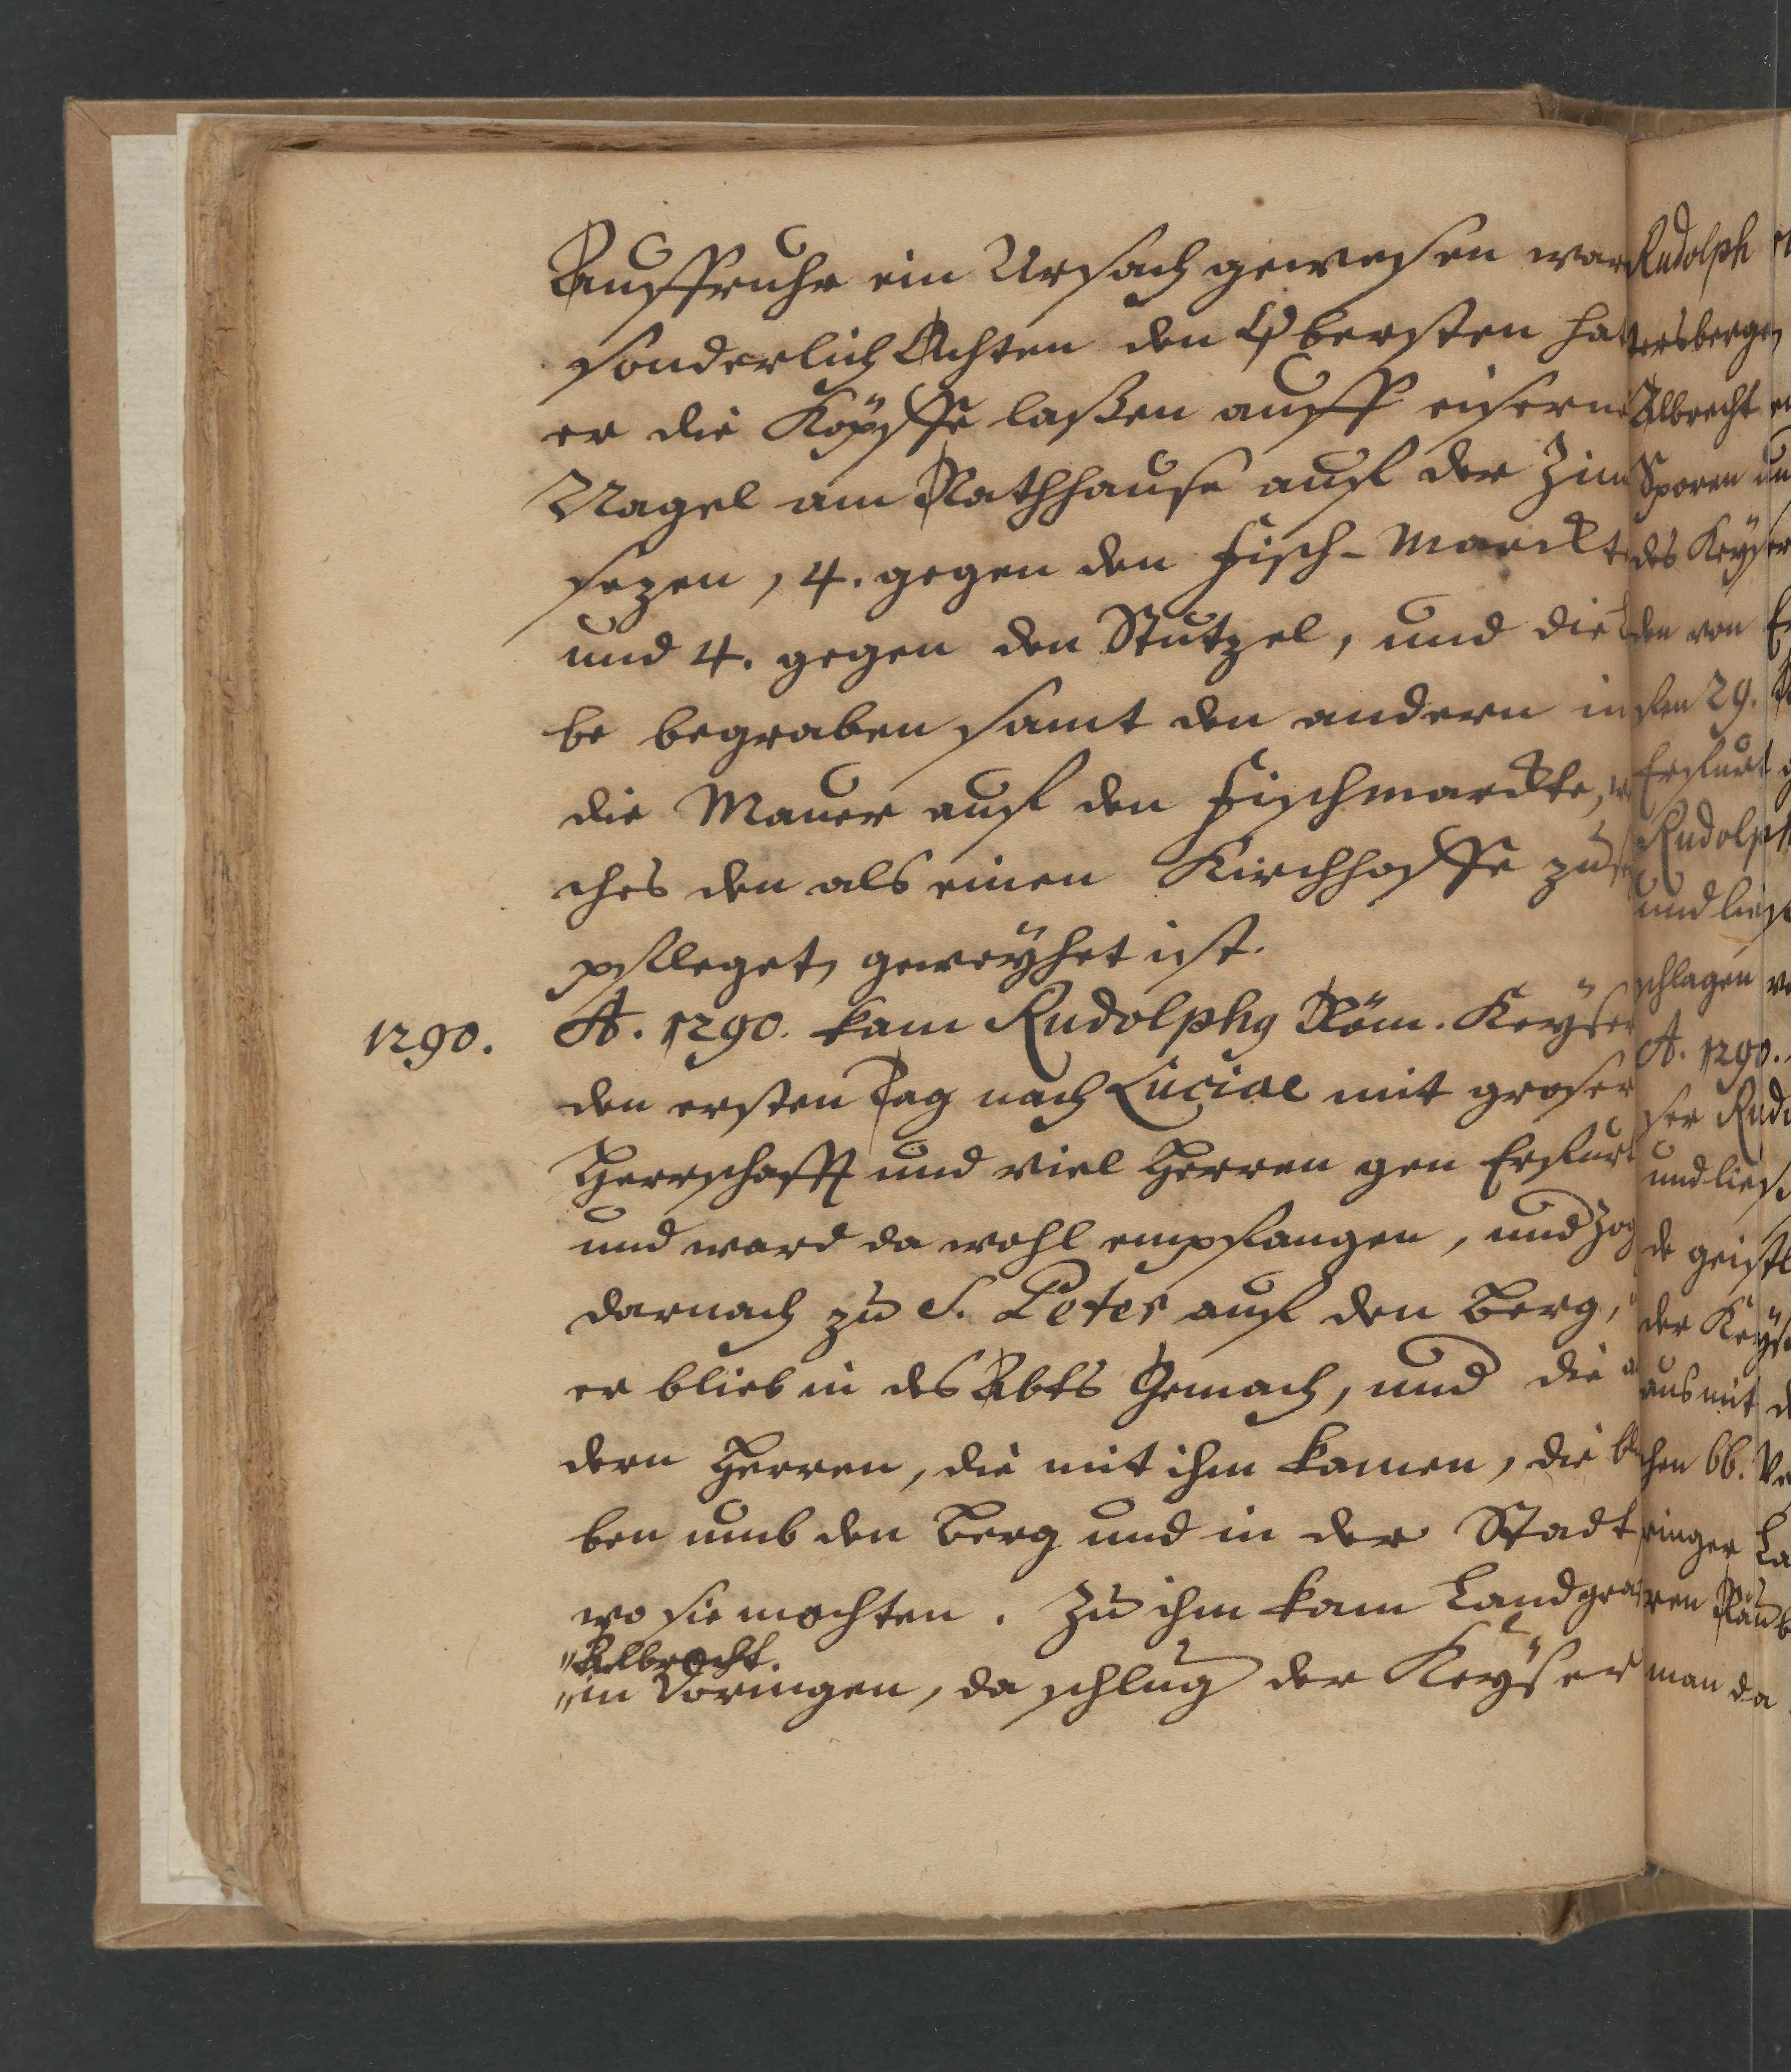 Auffruhr ein Ursach gewesen war
sonderlich Achten den Obersten hat
er die Köpffe laßen auff eiserne
Nagel am Rathhause auf der Zin
sezen, 4. gegen den Fisch-Marckt
und 4. gegen den Stützel, und die
be begraben samt den andern in
die Mauer auf den Fischmarckte,
ches den als einen Kirchhoffe zu
pfleget, geweÿhet ist.
1290. A. 1290. kam Rudolphg Röm. Keÿser
den ersten Tag nach Luciae mit groser
Herrschafft und viel Herren gen Erfurt
und ward da wohl empfangen, und zog
darnach zu S. Peter auf den Berg,
er blieb in des Abts Gemach, und die
dern Herren, die mit ihm kamen, die
ben umb den Berg und in der Stadt
wo sie mochten. Zu ihm kam Landgra
"Albrecht.
"in Döringen, da schlug der Keÿser
Rudolph
tersberge
Albrecht
Sporen un
des Keÿser
den von
sten 29.
Erfurt
Rudolph
und ließ
schlagen
A. 1290.
ser Rud
und ließ
de geistl
der Keÿs
aus mit
chen 66.
ringer La
ren Räub
man da